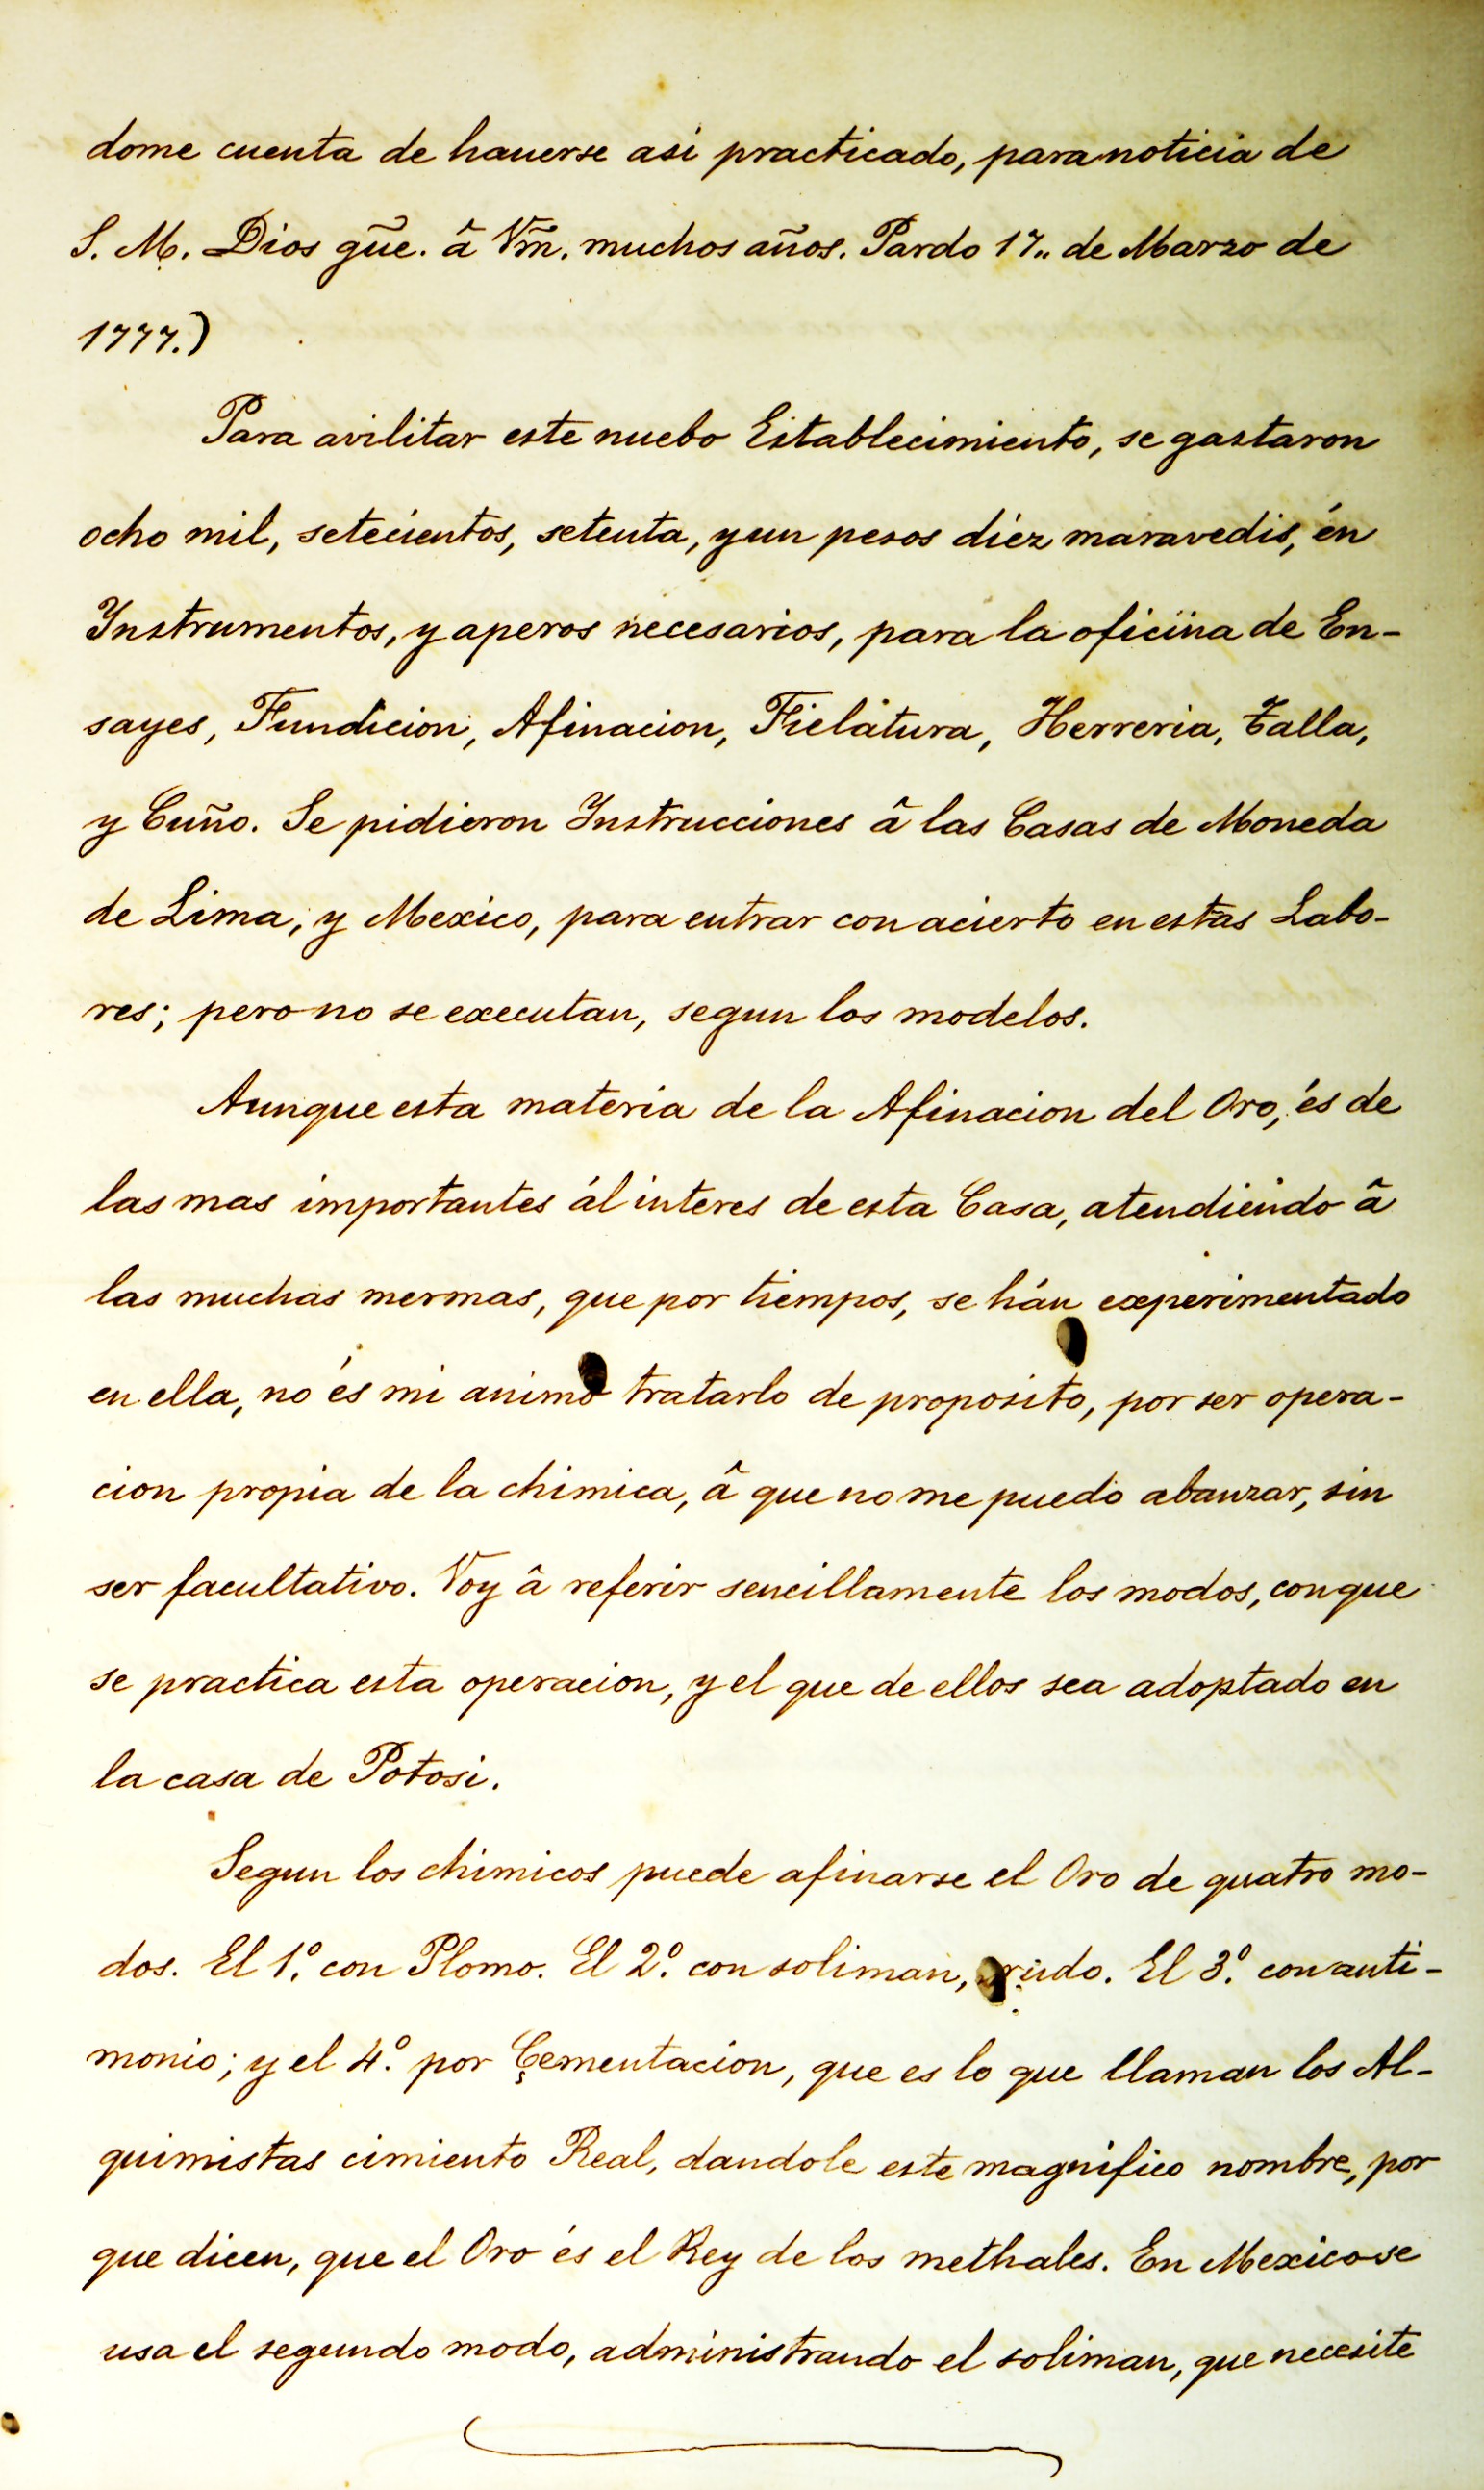 dome cuenta de hauerse asi practicado, para noticia de
S. M. Dios gũe. â Vm̃. muchos años. Pardo 17,, de Marzo de
1777.)
Para avilitar este nuebo Establecimiento, se gastaron
ocho mil, setecientos, setenta, y un pesos diéz maravedis, én
Ynstrumentos, y aperos necesarios, para la oficina de En-
sayes, Fundicion, Afinacion, Fielatura, Herreria, Talla,
y Cuño. Se pidieron Ynstrucciones â las Casas de Moneda
de Lima, y Mexico, para entrar con acierto en estas Labo-
res; pero no se executan, segun los modelos.
Aunque esta materia de la Afinacion del Oro, és de
las mas importantes ál interes de esta Casa, atendiendo â
las muchas mermas, que por tiempos, se hán experimentado
en ella, no és mi animo tratarlo de proposito, por ser opera-
cion propia de la chimica, â que no me puedo abanzar, sin
ser facultativo. Voy â referir sencillamente los modos, con que
se practica esta operacion, y el que de ellos sea adoptado en
la casa de Potosi.
Segun los chimicos puede afinarse el Oro de quatro mo-
dos. El 1.º con Plomo. El 2.º con soliman, crudo. El 3.º con anti-
monio; y el 4.º por Çementacion, que es lo que llaman los Al-
quimistas cimiento Real, dandole este magnifico nombre, por
que dicen, que el Oro és el Rey de los methales. En Mexico se
usa el segundo modo, administrando el soliman, que necesite